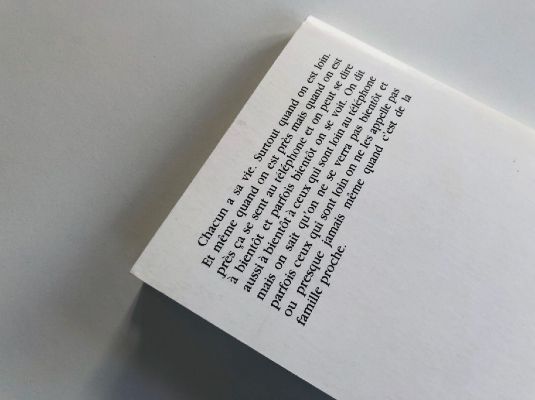 Chacun a sa vie. Surtout quand on est loin.
Et même quand on est près mais quand on est
près ça se sent au téléphone et on peut se dire
à bientôt et parfois bientôt on se voit. On dit
aussi à bientôt à ceux qui sont loin au téléphone
mais on sait qu'on ne se verra pas bientôt et
parfois ceux qui sont loin on ne les appelle pas
ou presque jamais même quand c'est de la
famille proche.